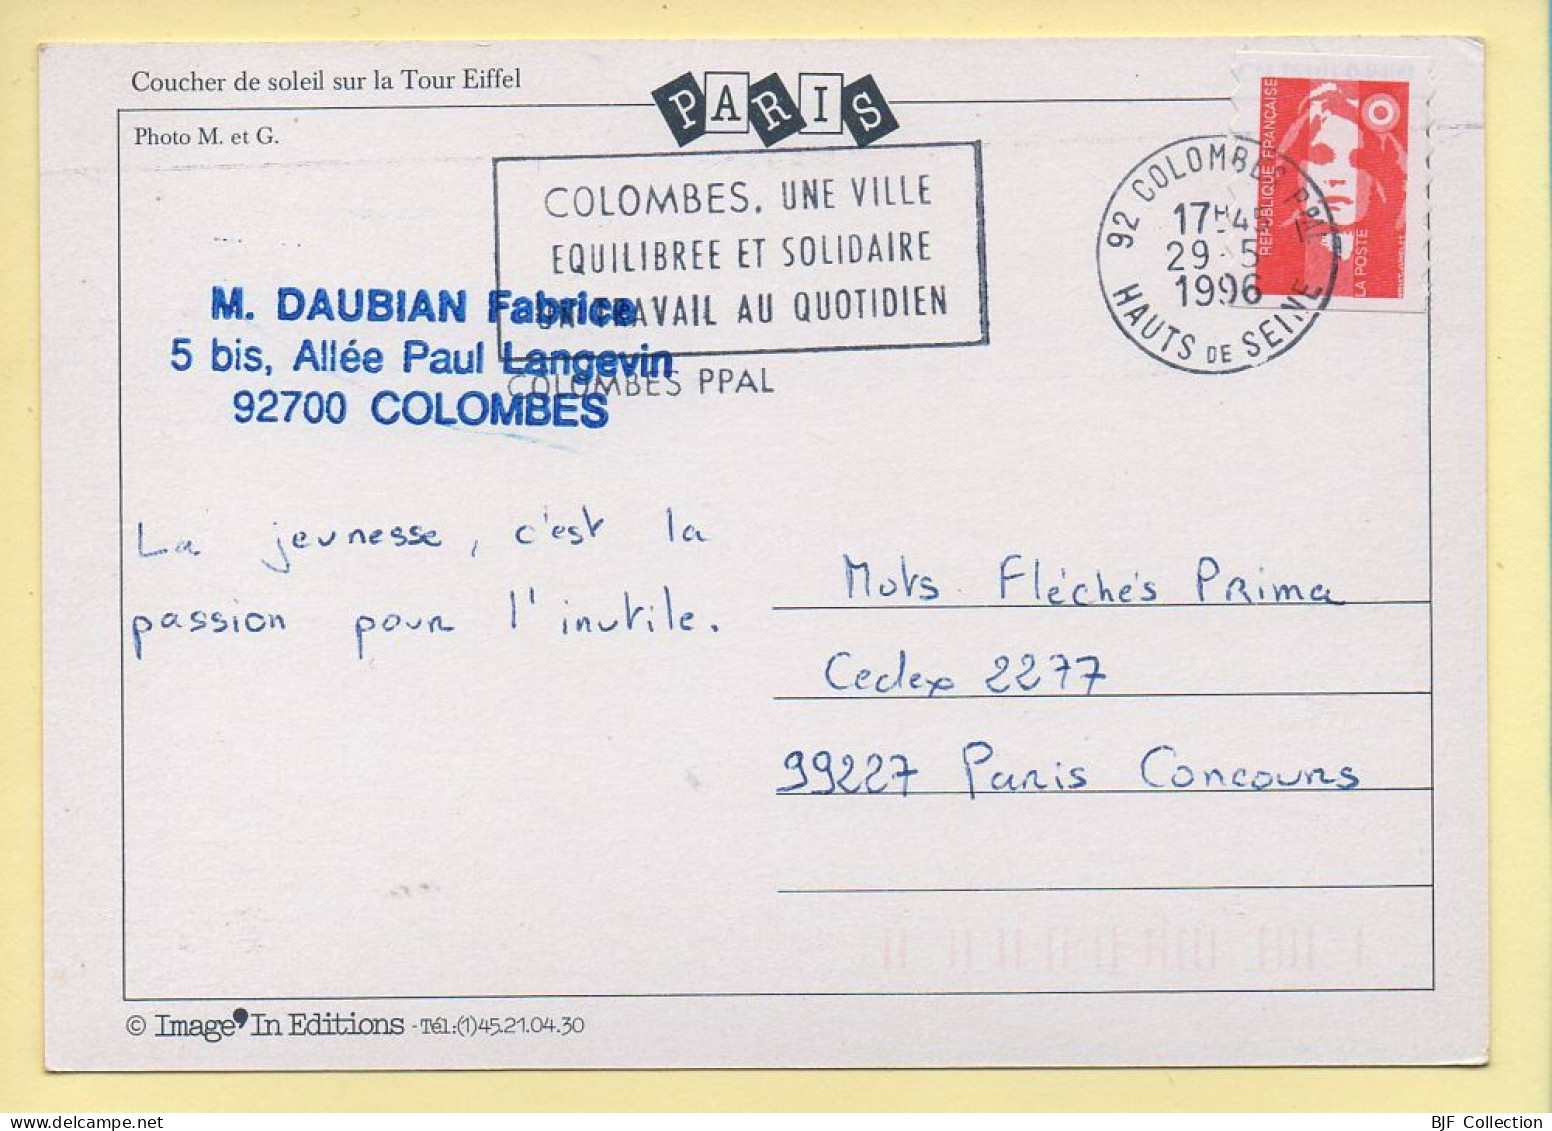 Coucher de soleil sur la Tour Eiffel
PARIS
Photo M. et G.
COLOMBES. UNE VILLE
EQUILIBREE ET SOLIDAIRE
UN TRAVAIL AU QUOTIDIEN
COLOMBES PPAL
92 COLOMBES PPAL
17H45
29-5
1996
HAUTS DE SEINE
REPUBLIQUE FRANÇAISE
LA POSTE
M. DAUBIAN Fabrice
5 bis, Allée Paul Langevin
92700 COLOMBES
La jeunesse, c'est la
passion pour l'inutile.
Mots Fléchés Prima
Cedex 2277
99227 Paris Concours
© Image'In Editions - Tél.:(1)45.21.04.30
BJF Collection